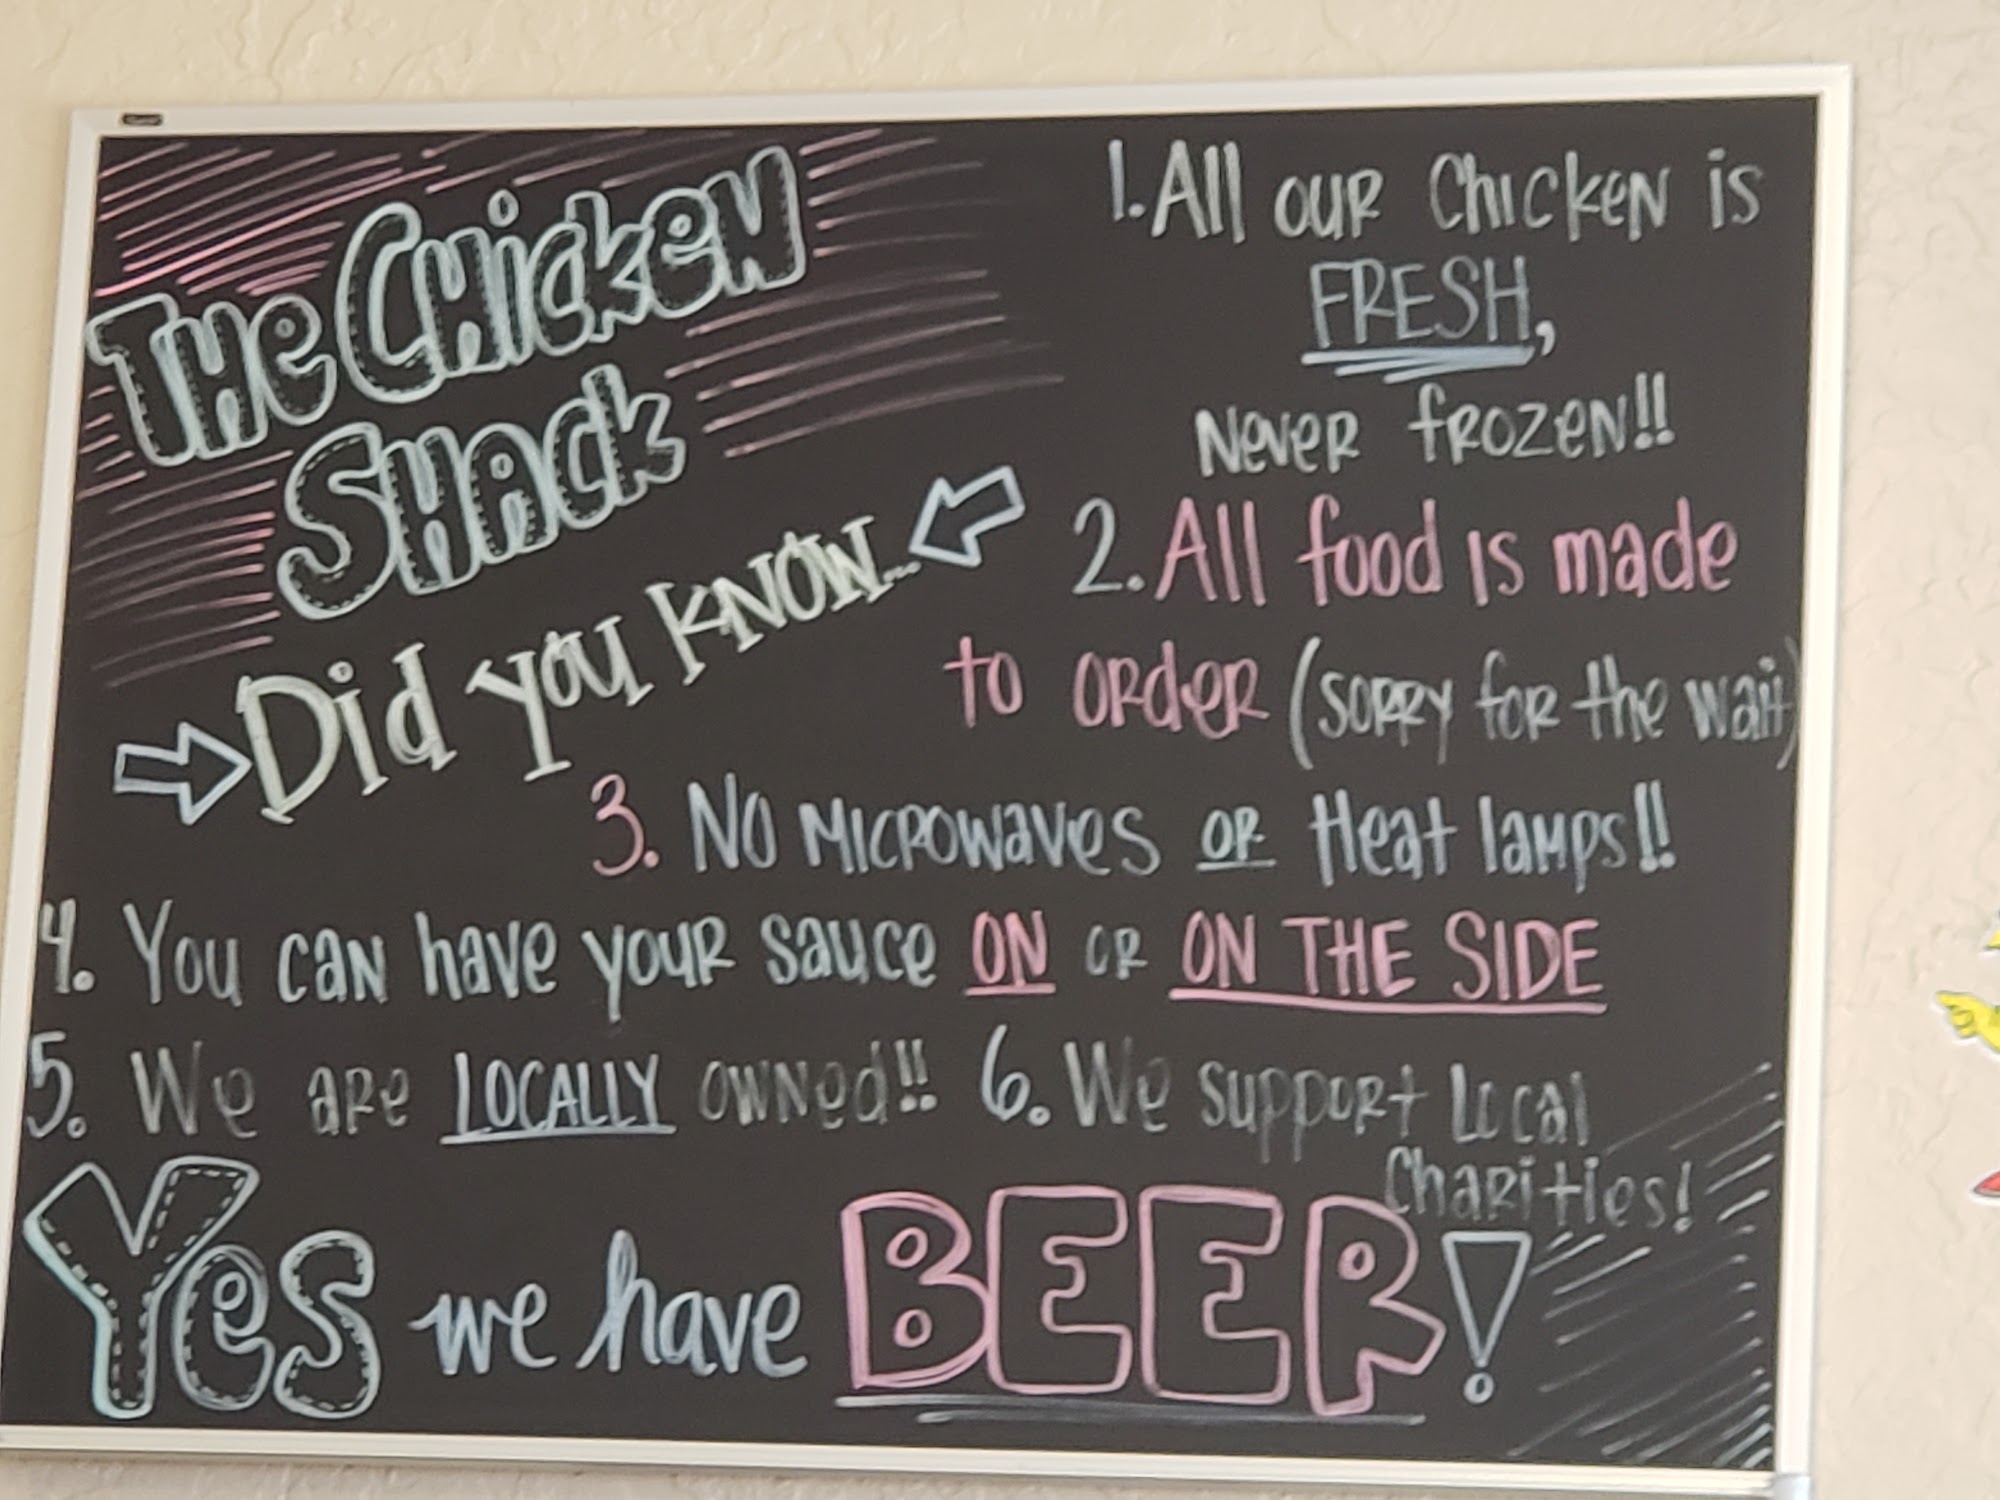 The Chicken
Shack
Did you know...
1. All our Chicken is
FRESH,
Never frozen!!
2. All food is made
to order (sorry for the wait)
3. No Microwaves or Heat lamps!!
4. You can have your sauce ON or ON THE SIDE
5. We are LOCALLY owned!! 6. We support Local
Charities!
Yes we have BEER!